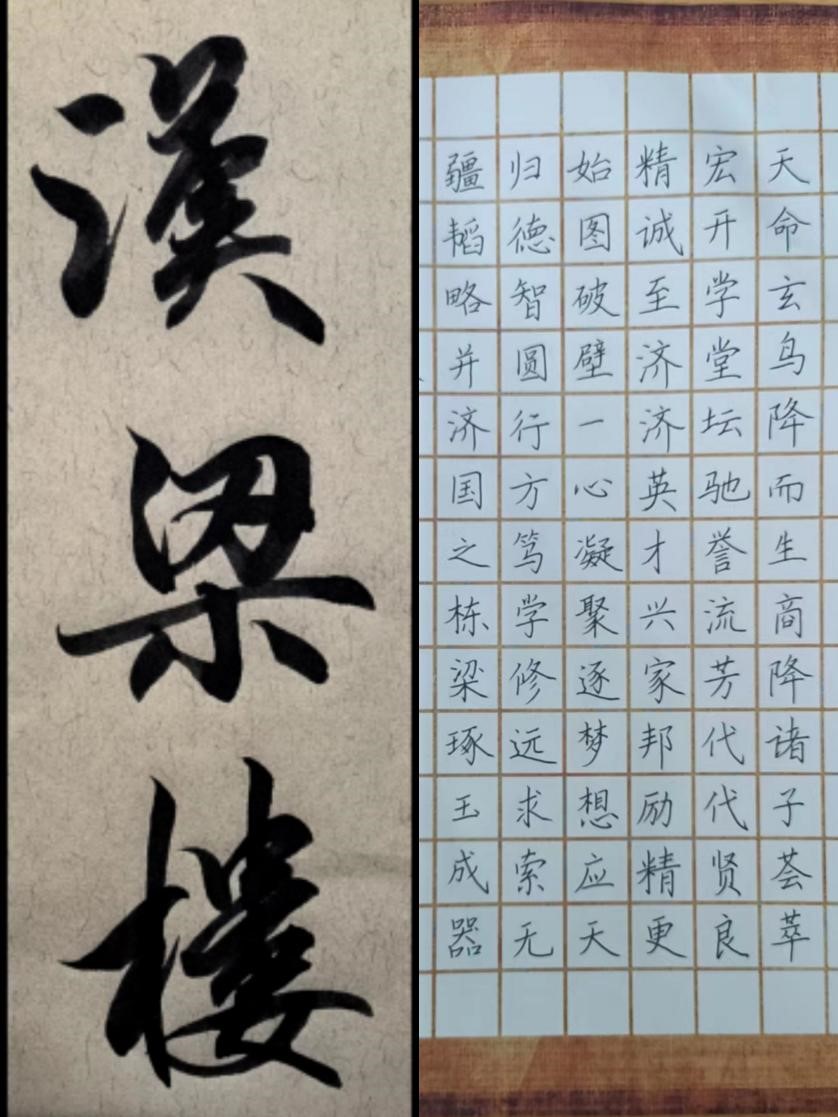 漢梁楼
天命玄鸟降而生商降诸子荟萃
宏开学堂坛驰誉流芳代代贤良
精诚至济济英才兴家邦励精更
始图破壁一心凝聚逐梦想应天
归德智圆行方笃学修远求索无
疆韬略并济国之栋梁琢玉成器